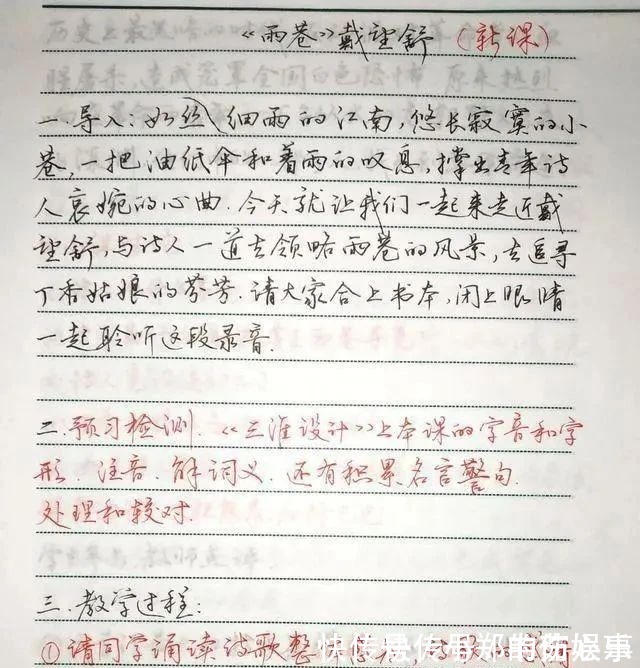 《雨巷》戴望舒 (新课)
一.导入:如丝细雨的江南,悠长寂寞的小
巷,一把油纸伞和着雨的叹息,撑出青年诗
人哀婉的心曲.今天就让我们一起来走近戴
望舒,与诗人一道去领略雨巷的风景,去追寻
丁香姑娘的芬芳.请大家合上书本,闭上眼睛
一起聆听这段录音.
二.预习检测.《三维设计》上本课的字音和字
形.注音.解词义.还有积累名言警句.
处理和较对.
三.教学过程:
①请同学诵读诗歌整